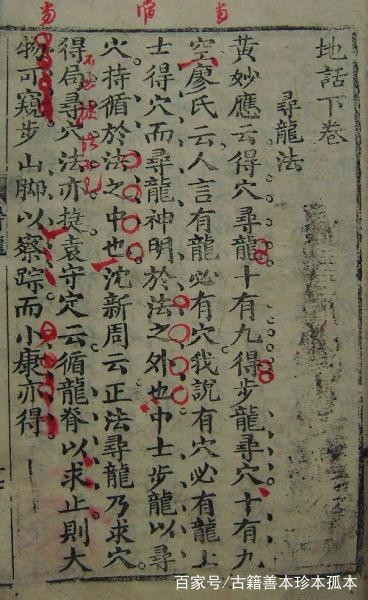 地話下卷
尋龍法
黃妙應云得穴尋龍十有九得步龍尋穴十有九
空廖氏云人言有龍必有穴我說有穴必有龍上
士得穴而尋龍神明於法之外也中士步龍以尋
穴持循於法之中也沈新周云正法尋龍乃求穴
得局尋穴法亦㨗袁守穴云循龍脊以求止則大
物可窺步山脚以察踪而小康亦得
百家号/古籍善本珍本孤本